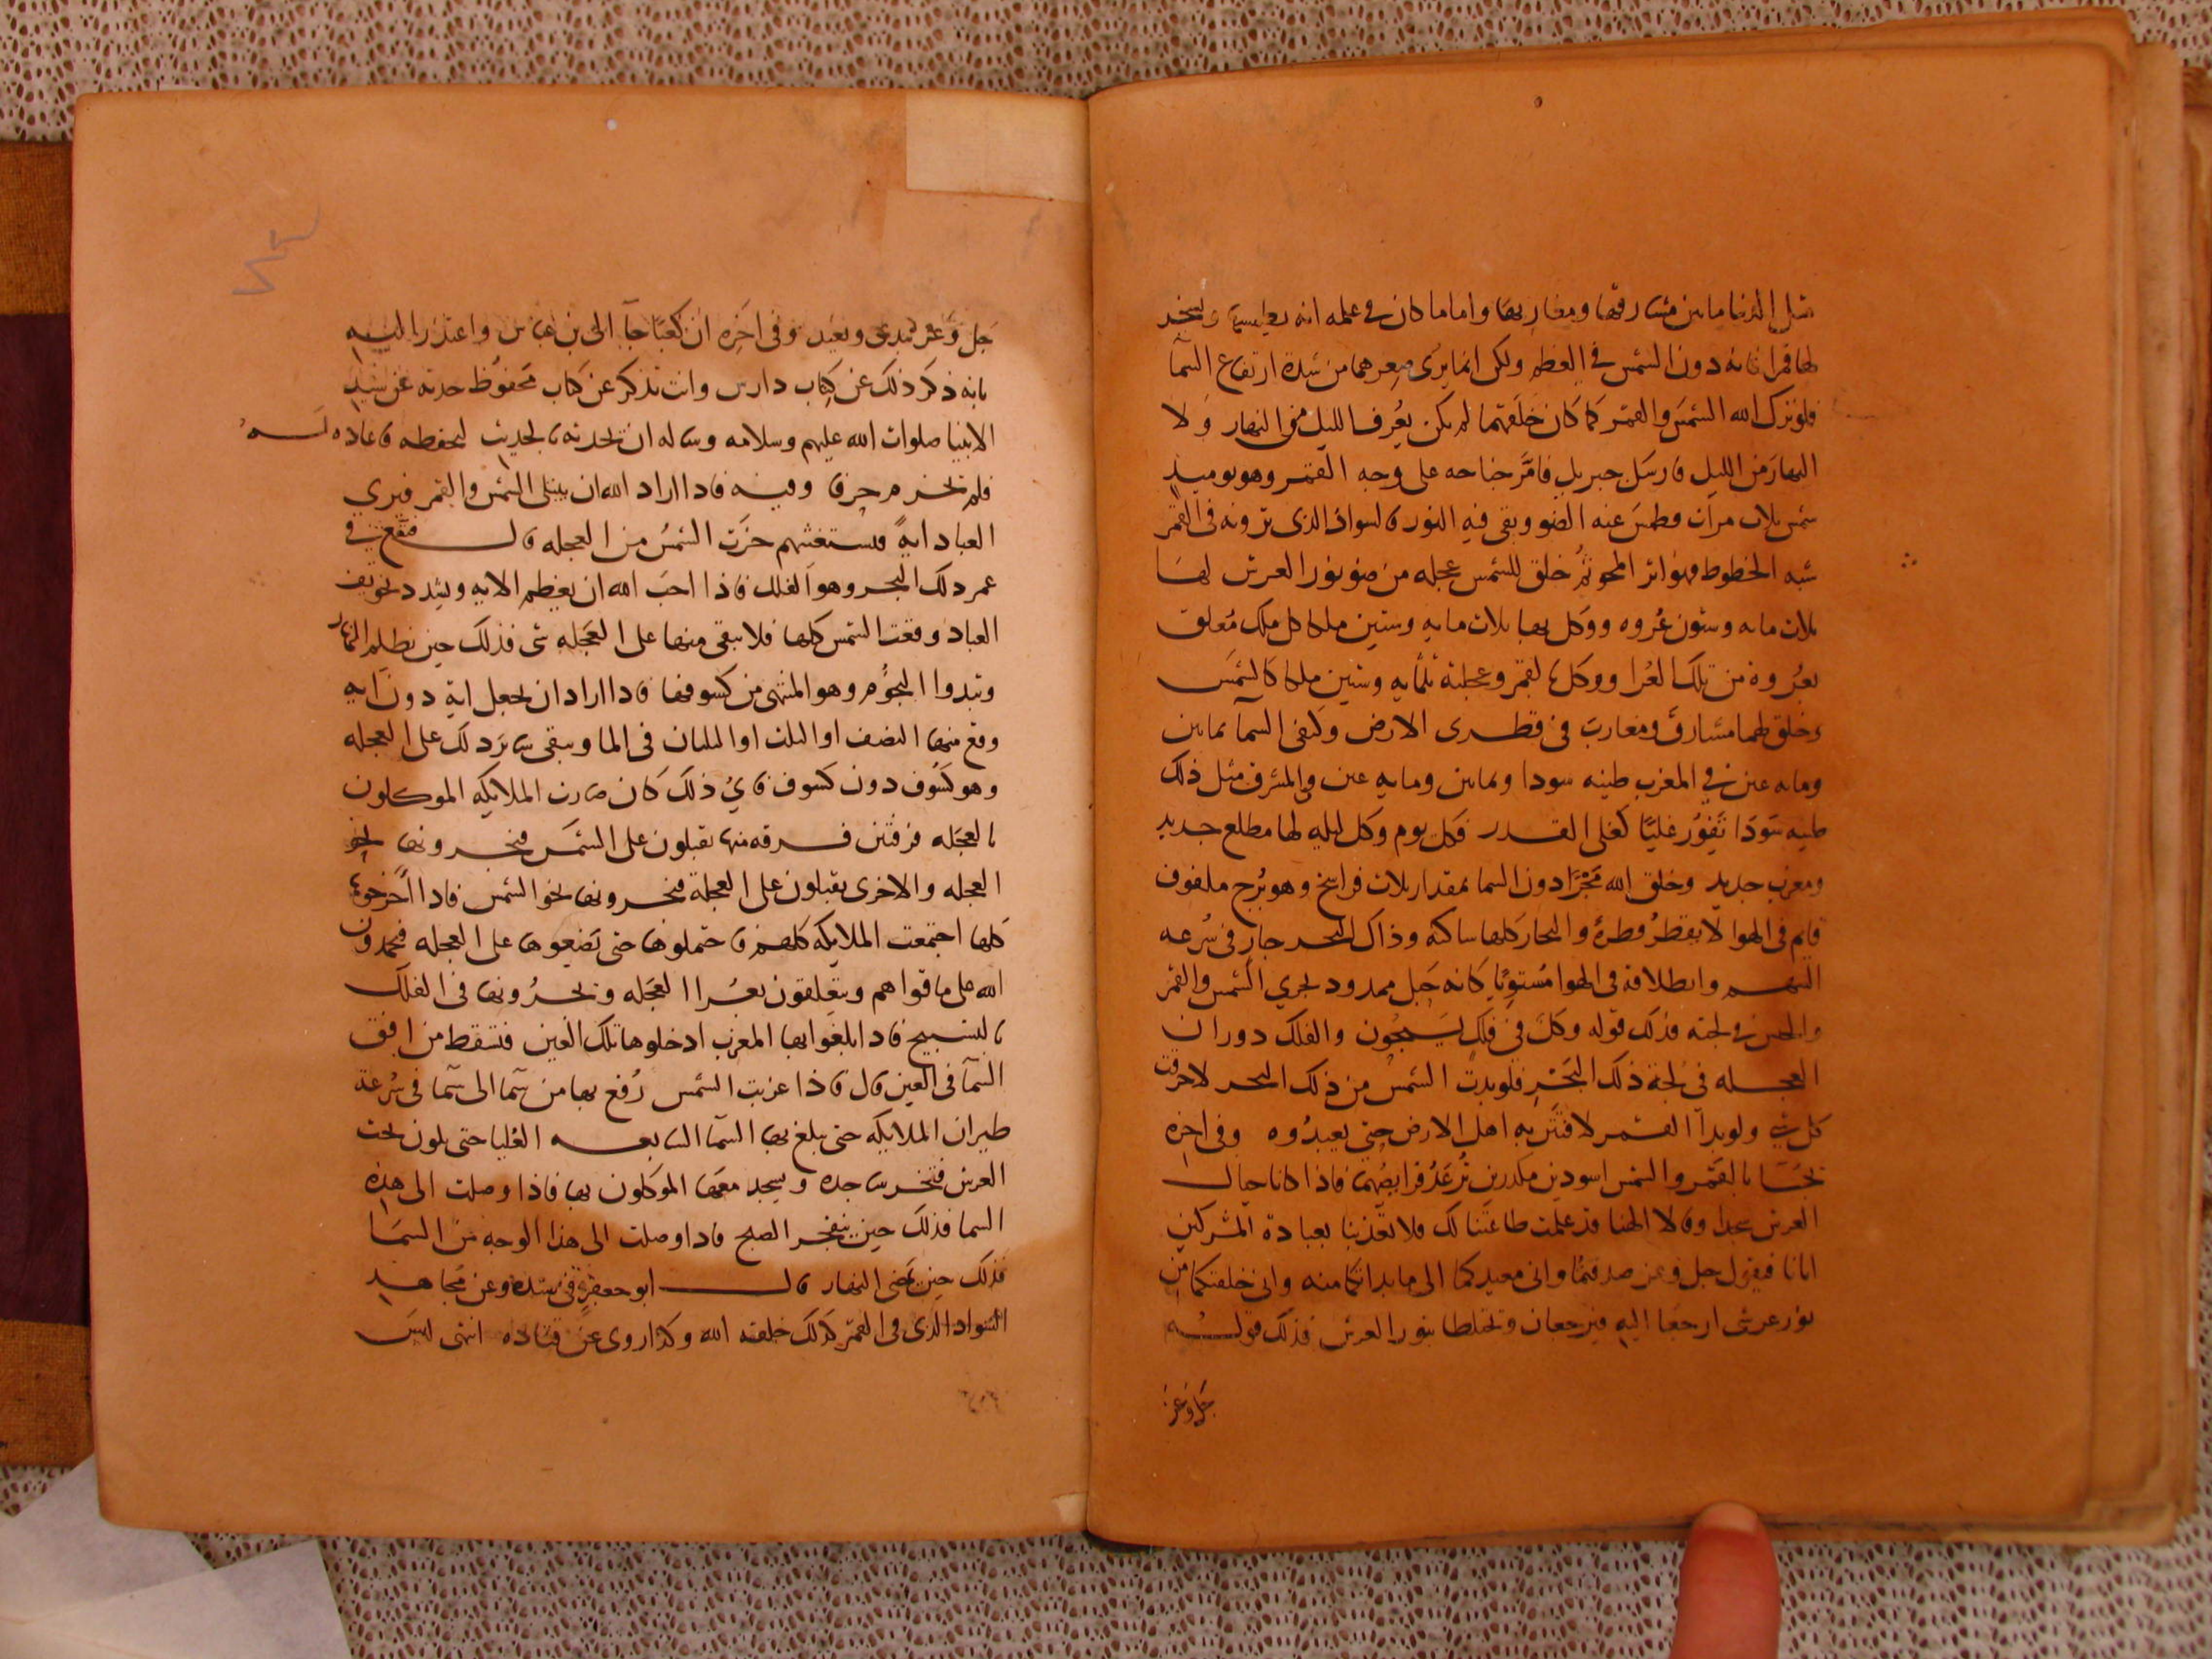 مثل الدنيا ما بين مشارقها ومغاربها واما ما كان في علمه انه يطمسها ويتخذ
لها قمرا فانه دون الشمس في العظم ولكن انما يرى صغرهما من شدة ارتفاع السمآ
فلو ترك الله الشمس والقمر كما كان خلقهما لم يكن يعرف الليل من النهار ولا
النهار من الليل فارسل جبريل فامر جناحه على وجه القمر وهو يوميذ
شمس ثلاث مرات فطمس عنه الضو وبقى فيه النور فالسواد الذي ترونه في القمر
شبه الخطوط فهو اثر المحو ثم خلق للشمس عجله من ضو نور العرش لها
ثلاث مايه وستون عروه ووكل بها ثلاث مايه وستين ملكا كل ملك معلق
بعروة من تلك العرا ووكل بالقمر وعجلته ثلثمايه وستين ملكا كالشمس
وخلق لهما مشارق ومغارب في قطرى الارض وكنفى السمآ ثمانين
ومايه عين في المغرب طينه سودا وثمانين ومايه عين في المشرق مثل ذلك
طينه سودا تفور غليا كغلى القدر فكل يوم وكل ليله لها مطلع جديد
ومغرب جديد وخلق الله بحرا دون السما بمقدار ثلاث فراسخ وهو موج ملفوف
قايم في الهوا لا يقطر قطرة والبحار كلها ساكنه وذاك البحر جار في سرعه
السهم وانطلاقه في الهوا مستويا كانه جبل ممدود تجري الشمس والقمر
والخنس في لجته فذلك قوله وكل في فلك يسبحون والفلك دوران
العجله في لجة ذلك البحر فلو بدت الشمس من ذلك البحر لاحرقت
كل شي ولو بدا القمر لافتتن به اهل الارض حتى يعبدوه وفي اخره
يجا بالقمر والشمس اسودين مكدرين ترعد فرايصهما فاذا كانا حيال
العرش سجدا وقالا الهنا قد علمت طاعتنا لك فلا تعذبنا بعبادة المشركين
ايانا فيقول جل وعز صدقتما واني معيدكما الى ما بداتكما منه واني خلقتكما من
نور عرشي ارجعا اليه فيرجعان وتختلطا بنور العرش فذلك قوله
جل وعز
جل وعز يبدى ويعيد وفي اخره ان كعبا جآ الى بن عباس واعتذر اليه
بانه ذكر ذلك عن كتاب دارس وانت تذكر عن كتاب محفوظ حدثه عن سيد
الانبيا صلوات الله عليهم وسلامه وساله ان يحدثه بالحديث ليحفظه فاعاده له
فلم يخرم حرفا وفيه فاذا اراد الله ان يبتلى الشمس والقمر فيري
العباد اية فيستعتبهم خرت الشمس من العجله قال فتقع في
غمر ذلك البحر وهو الفلك فاذا احب الله ان يعظم الايه ويشدد تخويف
العباد وقعت الشمس كلها فلا يبقى منها على العجله شي فذلك حين يظلم النهار
وتبدوا النجوم وهو المنتهى من كسوفها فاذا اراد ان يجعل اية دون ايه
وقع منها النصف او الثلث او الثلثان في الما ويبقى ساير ذلك على العجله
وهو كسوف دون كسوف فاي ذلك كان صارت الملايكه الموكلون
بالعجله فرقتين فرقه منها يقبلون على الشمس فيجرونها نحو
العجله والاخرى يقبلون على العجلة فيجرونها نحو الشمس فاذا اخرجوها
كلها اجتمعت الملايكه كلهم فاحتملوها حتى يضعوها على العجله فيحمدون
الله على ما قواهم ويتعلقون بعرا العجله ويجرونها في الفلك
بالتسبيح فاذا بلغوا بها المغرب ادخلوها تلك العين فتسقط من افق
السمآ في العين قال فاذا غربت الشمس رفع بها من سما الى سما في سرعة
طيران الملايكه حتى يبلغ بها السمآ السابعه العليا حتى يكون تحت
العرش فتخر ساجده ويسجد معها الموكلون بها فاذا وصلت الى هذه
السما فذلك حين ينفجر الصبح فاذا وصلت الى هذا الوجه من السما
فذلك حين يضى النهار قال ابو جعفر في سنده وعن مجاهد
السواد الذي في القمر كذلك خلقه الله وكذا روى عن قتاده انتهى ليس